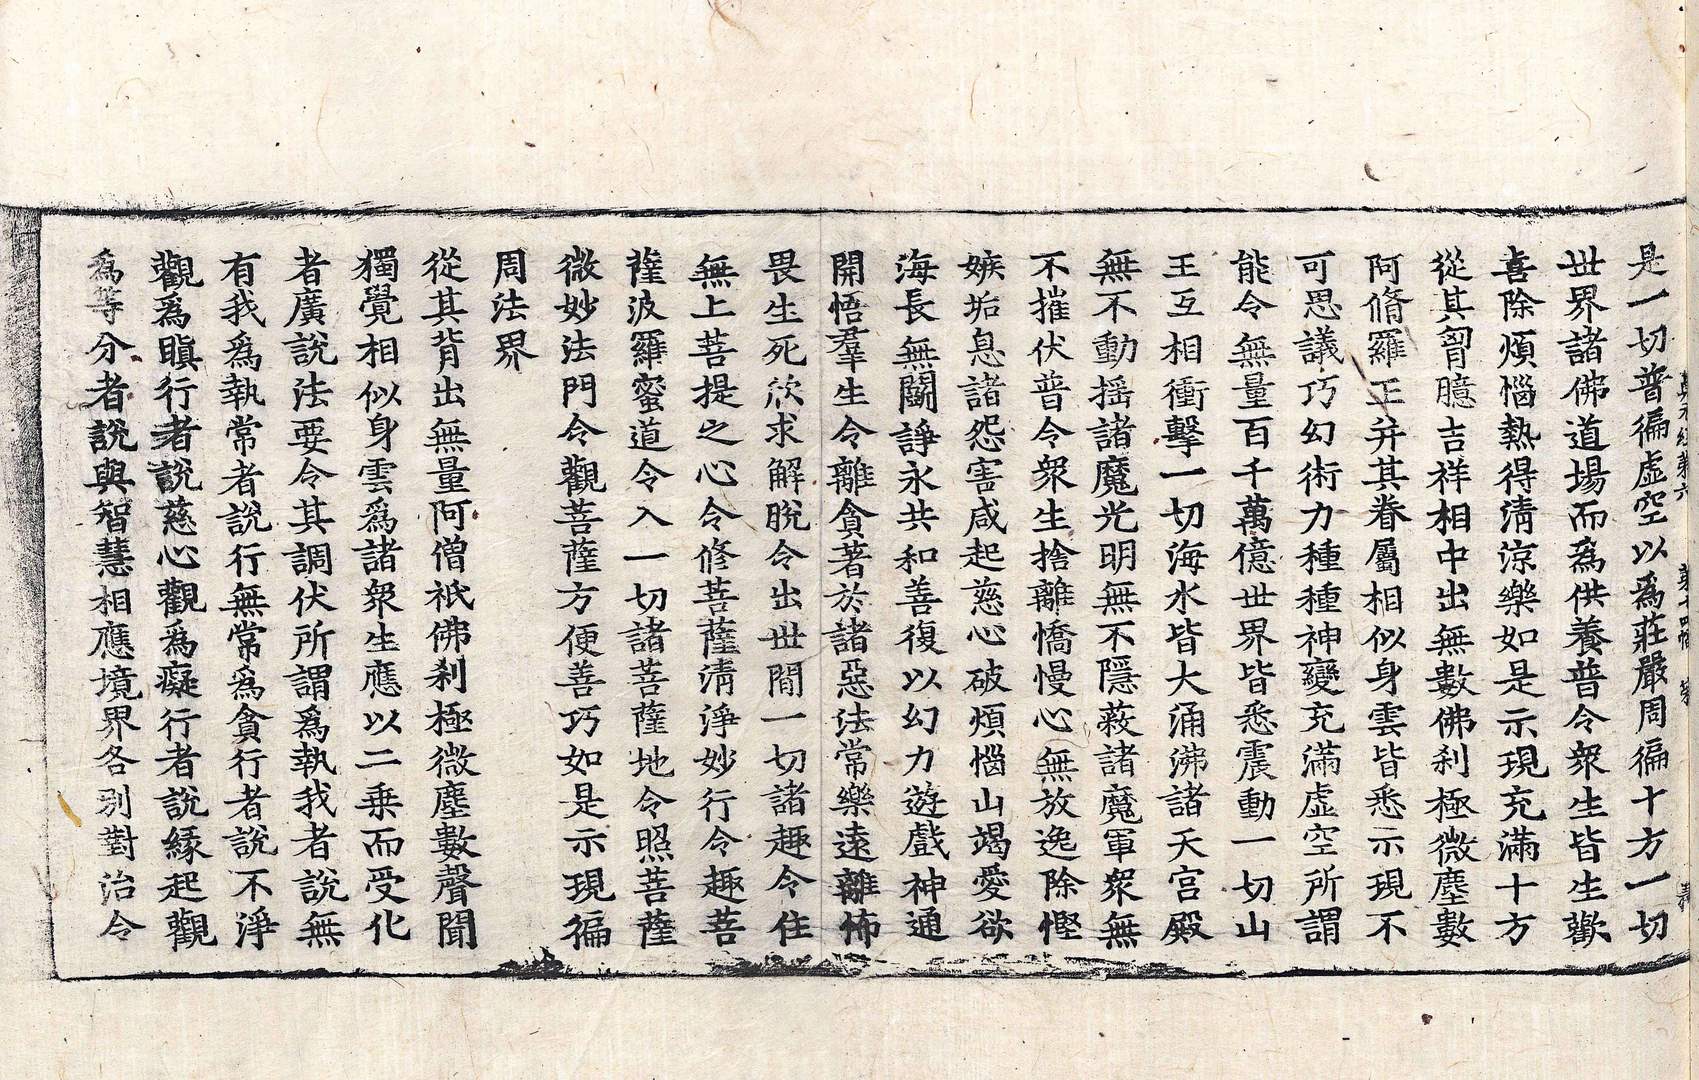 是一切普徧虛空以爲莊嚴周徧十方一切
世界諸佛道場而爲供養普令衆生皆生歡
喜除煩惱熱得淸涼樂如是示現充滿十方
從其胷臆吉祥相中出無數佛刹極微塵數
阿脩羅王并其眷屬相似身雲皆悉示現不
可思議巧幻術力種種神變充滿虛空所謂
能令無量百千萬億世界皆悉震動一切山
王互相衝擊一切海水皆大涌沸諸天宮殿
無不動搖諸魔光明無不隱蔽諸魔軍衆無
不摧伏普令衆生捨離憍慢心無放逸除慳
嫉垢息諸怨害咸起慈心破煩惱山竭愛欲
海長無鬪諍永共和善復以幻力遊戲神通
開悟羣生令離貪著於諸惡法常樂遠離怖
畏生死欣求解脫令出世間一切諸趣令住
無上菩提之心令修菩薩淸淨妙行令趣菩
薩波羅蜜道令入一切諸菩薩地令照菩薩
微妙法門令觀菩薩方便善巧如是示現徧
周法界
從其背出無量阿僧祇佛刹極微塵數聲聞
獨覺相似身雲爲諸衆生應以二乘而受化
者廣說法要令其調伏所謂爲執我者說無
有我爲執常者說行無常爲貪行者說不淨
觀爲瞋行者說慈心觀爲癡行者說緣起觀
爲等分者說與智慧相應境界各別對治令